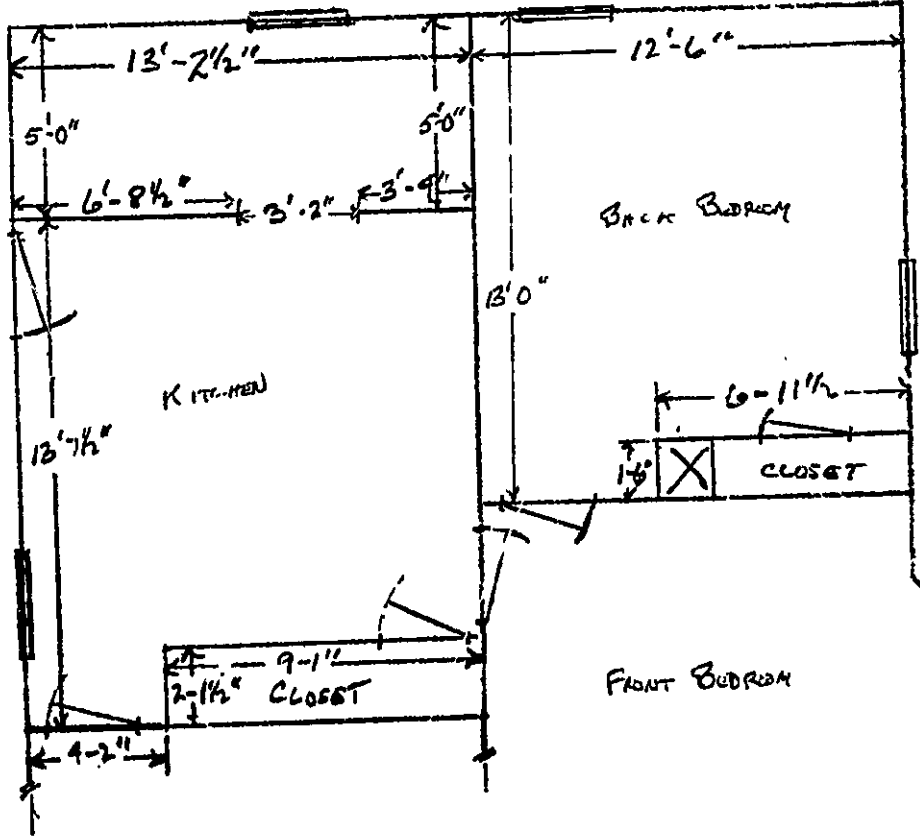 13'-2½"
12'-6"
5'-0"
5'0"
6'-8½"
3'-2"
3'-4"
BACK BEDROOM
13'0"
KITCHEN
6-11½
13'7½"
1-6"
CLOSET
9-1"
2-1½"
CLOSET
FRONT BEDROOM
4-2"